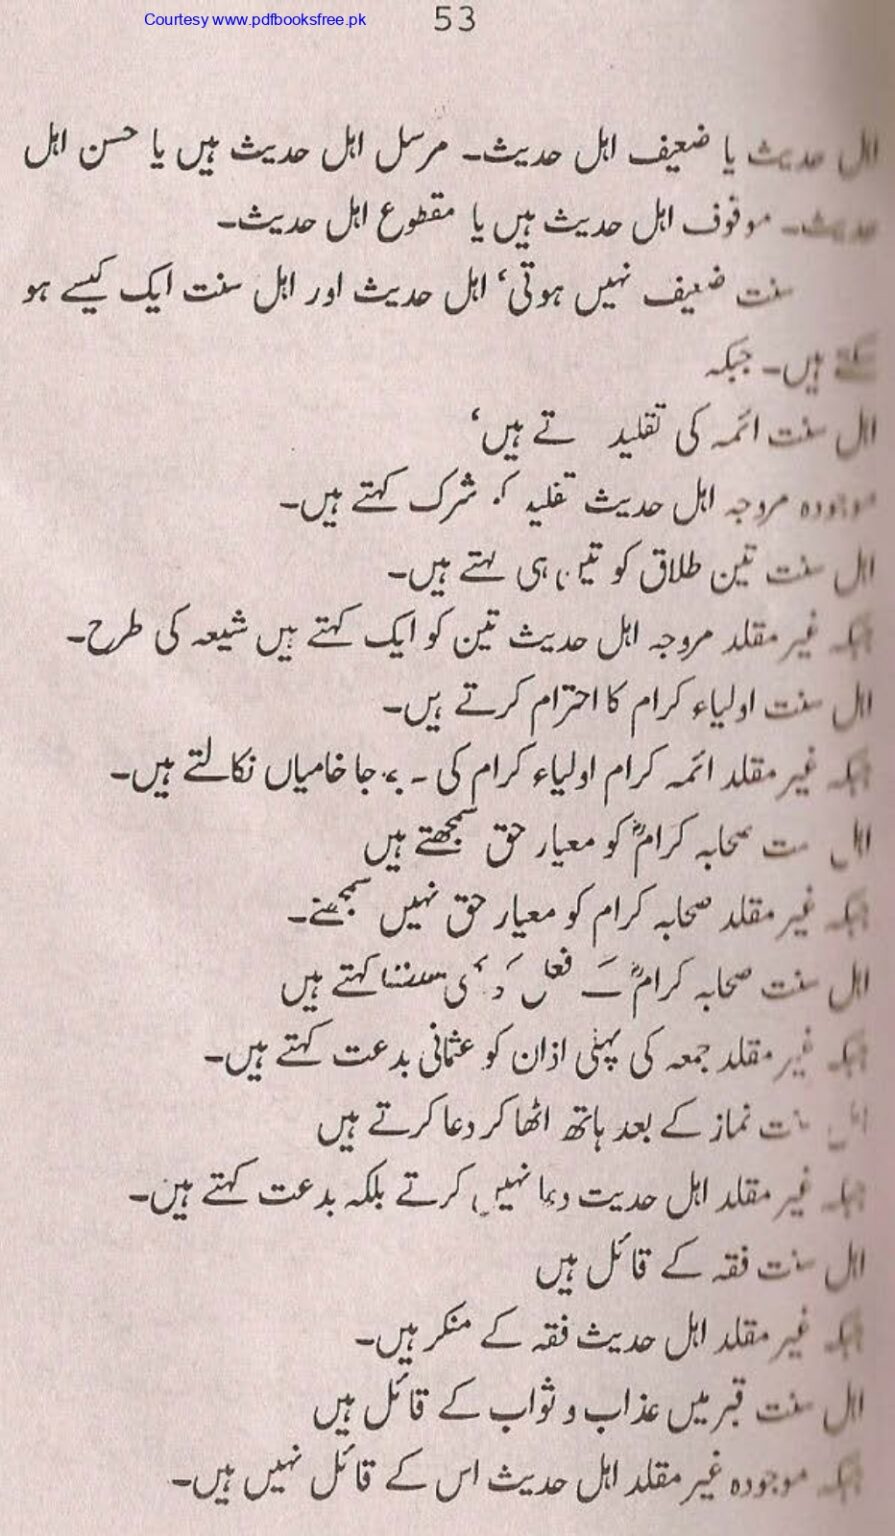 Courtesy www.pdfbooksfree.pk
53
اہل حدیث یا ضعیف اہل حدیث۔ مرسل اہل حدیث ہیں یا حسن اہل
حدیث۔ موقوف اہل حدیث ہیں یا مقطوع اہل حدیث۔
سنت ضعیف نہیں ہوتی‘ اہل حدیث اور اہل سنت ایک کیسے ہو
سکتے ہیں۔ جبکہ
اہل سنت ائمہ کی تقلید تے ہیں‘
موجودہ مروجہ اہل حدیث تقلید کو شرک کہتے ہیں۔
اہل سنت تین طلاق کو تین ہی کہتے ہیں۔
جبکہ غیر مقلد مروجہ اہل حدیث تین کو ایک کہتے ہیں شیعہ کی طرح۔
اہل سنت اولیاء کرام کا احترام کرتے ہیں۔
جبکہ غیر مقلد ائمہ کرام اولیاء کرام کی بے جا خامیاں نکالتے ہیں۔
اہل سنت صحابہ کرامؓ کو معیار حق سمجھتے ہیں
جبکہ غیر مقلد صحابہ کرام کو معیار حق نہیں سمجھتے۔
اہل سنت صحابہ کرامؓ کے فعل کو سنت کہتے ہیں
جبکہ غیر مقلد جمعہ کی پہلی اذان کو عثمانی بدعت کہتے ہیں۔
اہل سنت نماز کے بعد ہاتھ اٹھا کر دعا کرتے ہیں
جبکہ غیر مقلد اہل حدیث دعا نہیں کرتے بلکہ بدعت کہتے ہیں۔
اہل سنت فقہ کے قائل ہیں
جبکہ غیر مقلد اہل حدیث فقہ کے منکر ہیں۔
اہل سنت قبر میں عذاب و ثواب کے قائل ہیں
جبکہ موجودہ غیر مقلد اہل حدیث اس کے قائل نہیں ہیں۔